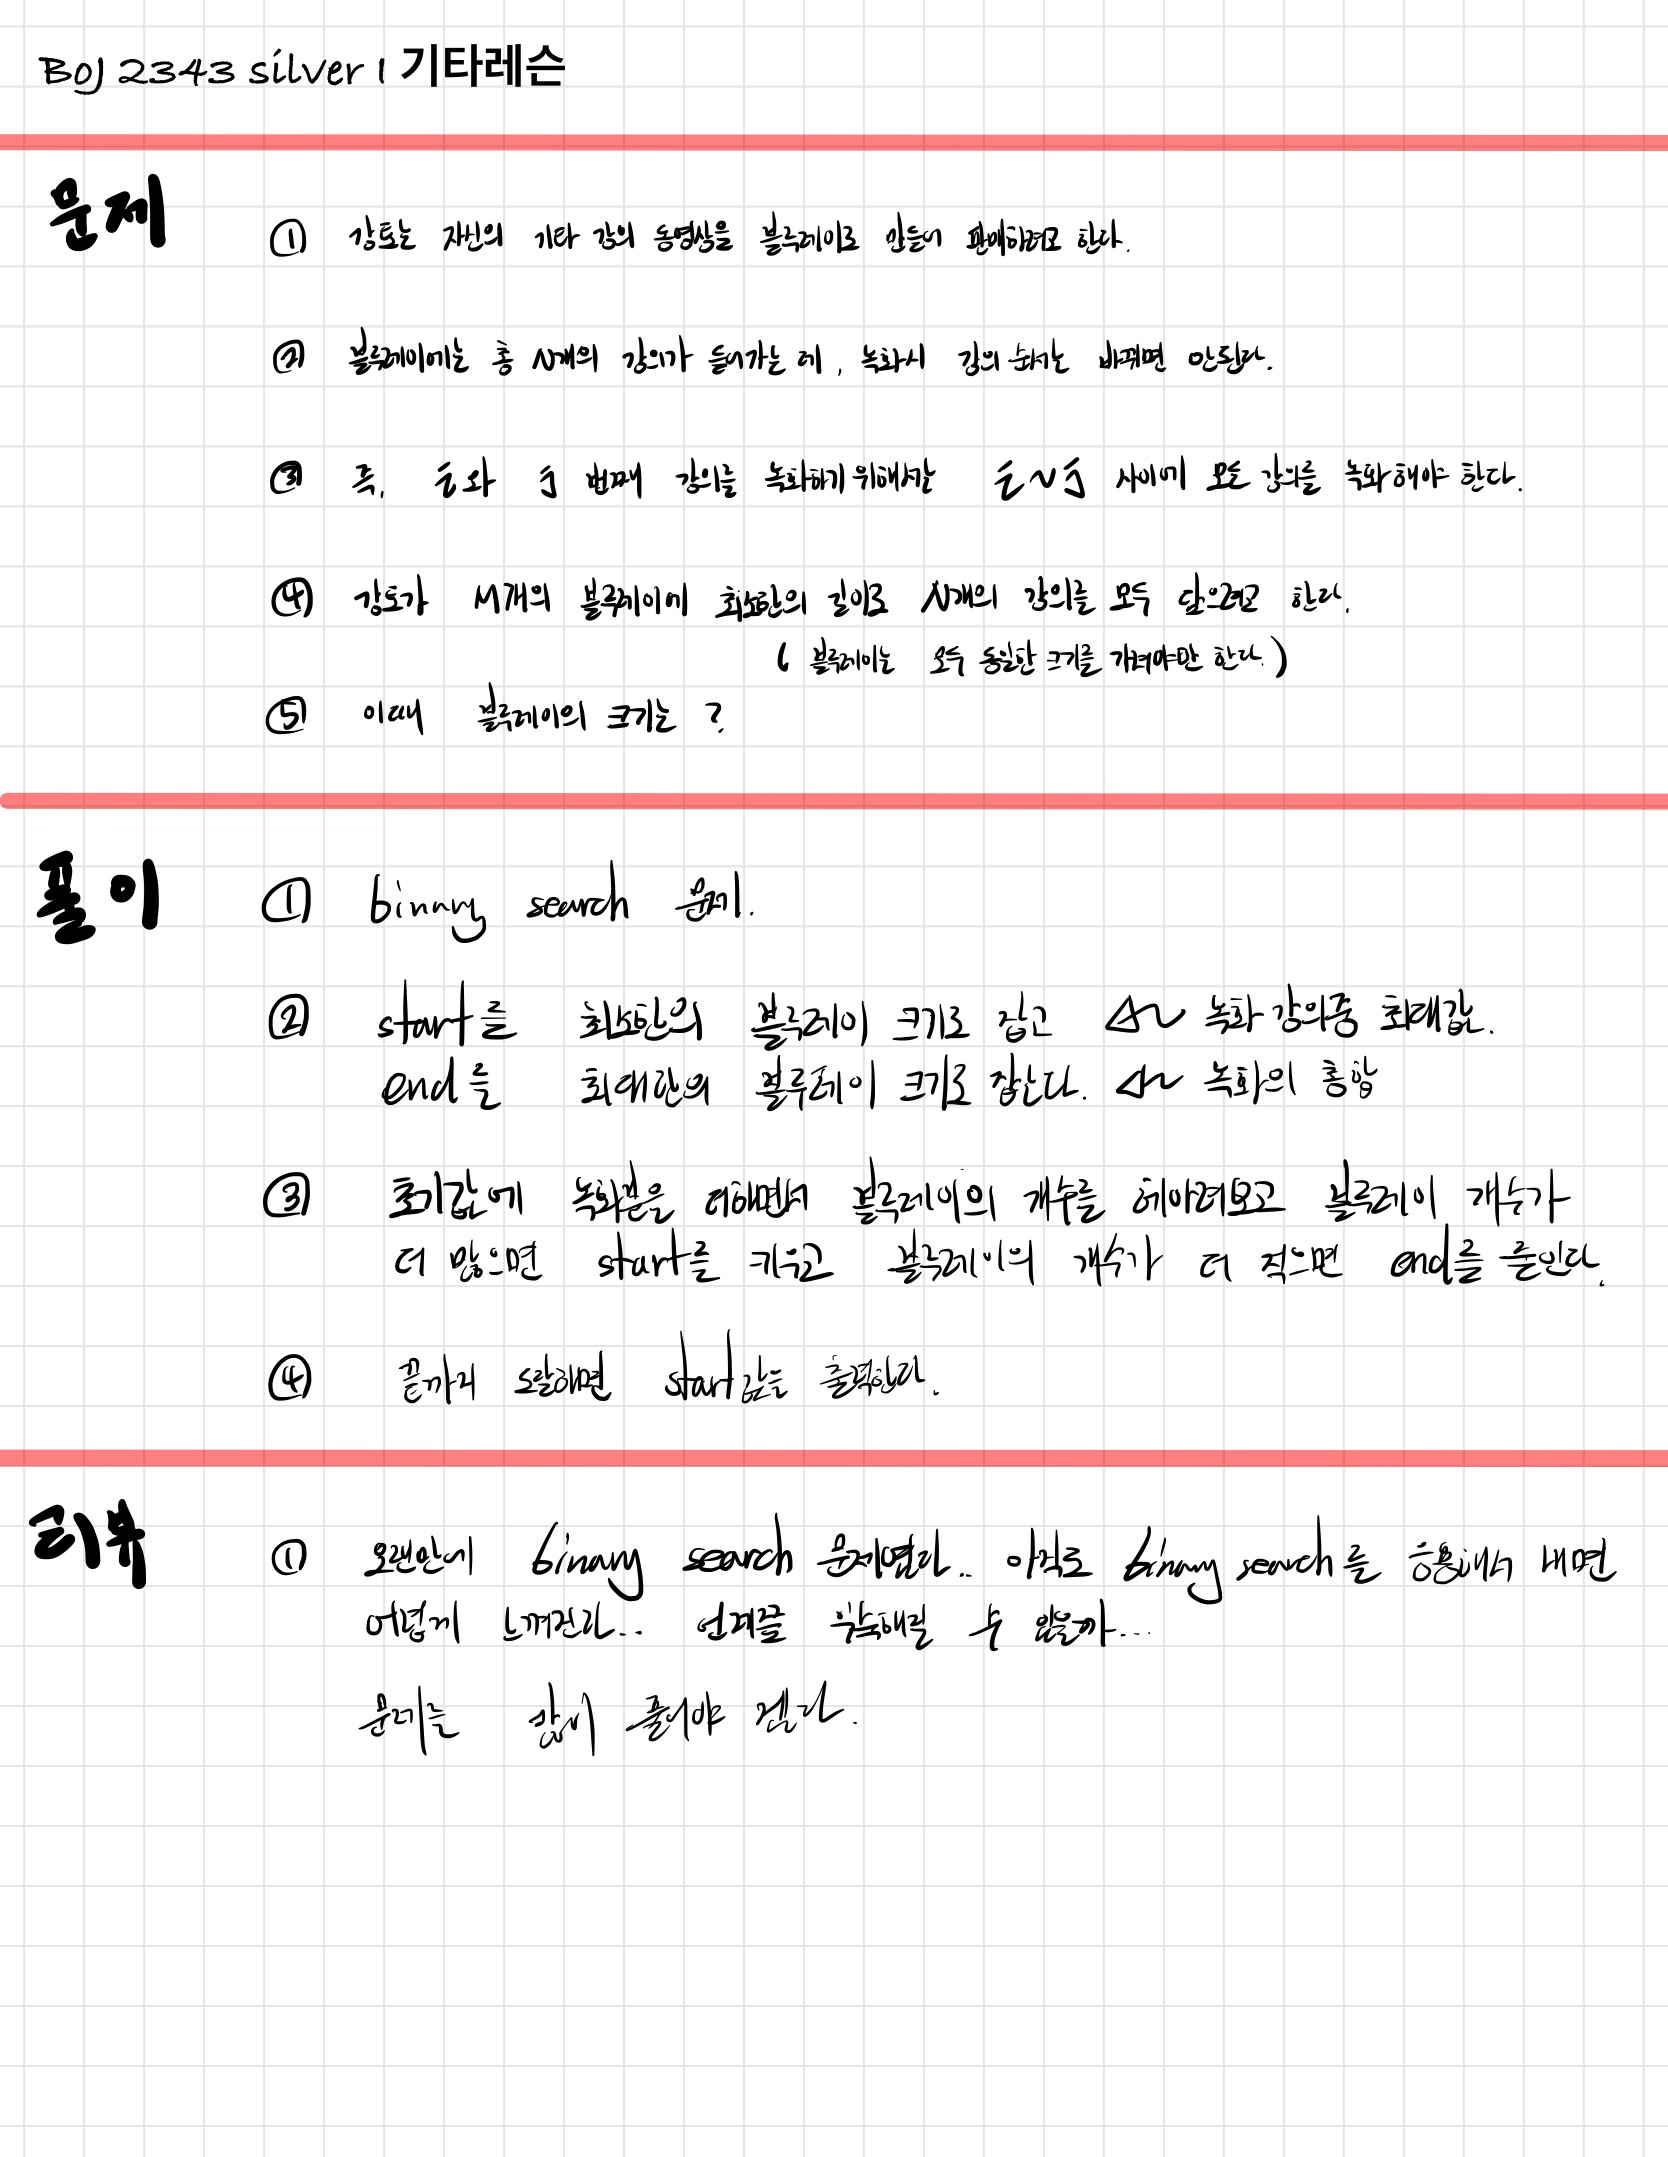 BOJ 2343 silver 1 기타레슨
문제
① 강토는 자신의 기타 강의 동영상을 블루레이로 만들어 판매하려고 한다.
② 블루레이에는 총 N개의 강의가 들어가는 데, 녹화시 강의 순서는 바뀌면 안된다.
③ 즉, i와 j 번째 강의를 녹화하기 위해서는 i~j 사이에 모든 강의를 녹화해야 한다.
④ 강토가 M개의 블루레이에 최소한의 길이로 N개의 강의를 모두 담으려고 한다.
( 블루레이는 모두 동일한 크기를 가져야만 한다.)
⑤ 이때 블루레이의 크기는 ?
풀이
① binary search 문제.
② start를 최소한의 블루레이 크기로 잡고 녹화 강의중 최대값.
end를 최대한의 블루레이 크기로 잡는다. 녹화의 총합
③ 초기값에 녹화분을 더해면서 블루레이의 개수를 헤아려보고 블루레이 개수가
더 많으면 start를 키우고 블루레이의 개수가 더 적으면 end를 줄인다.
④ 끝까지 도달하면 start값을 출력한다.
리뷰
① 오랜만에 binary search 문제였다.. 아직도 binary search를 응용해서 내면
어렵게 느껴진다... 언제쯤 익숙해질 수 있을까...
문제를 많이 풀어야 겠다.